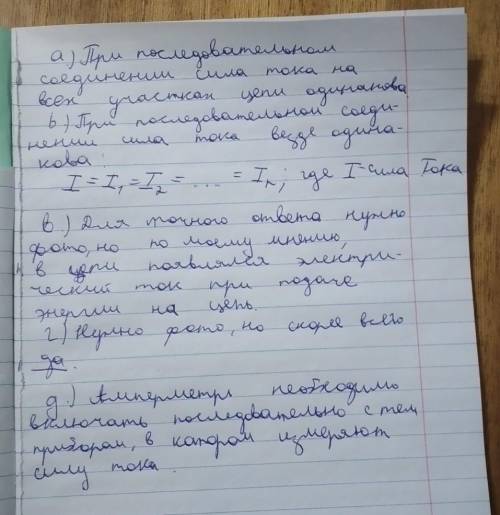 а) При последовательном
соединении сила тока на
всех участках цепи одинакова
b) При последовательной соеди-
нении сила тока везде одина-
кова:
I = I₁ = I₂ = .... = Iₙ; где I-сила Тока
в.) Для точного ответа нужно
фото, но по моему мнению,
в цепи появлялся электри-
ческий ток при подаче
энергии на цепь.
г) Нужно фото, но скорее всего
да.
д.) Амперметры необходимо
включать последовательно с тем
прибором, в котором измеряют
силу тока.